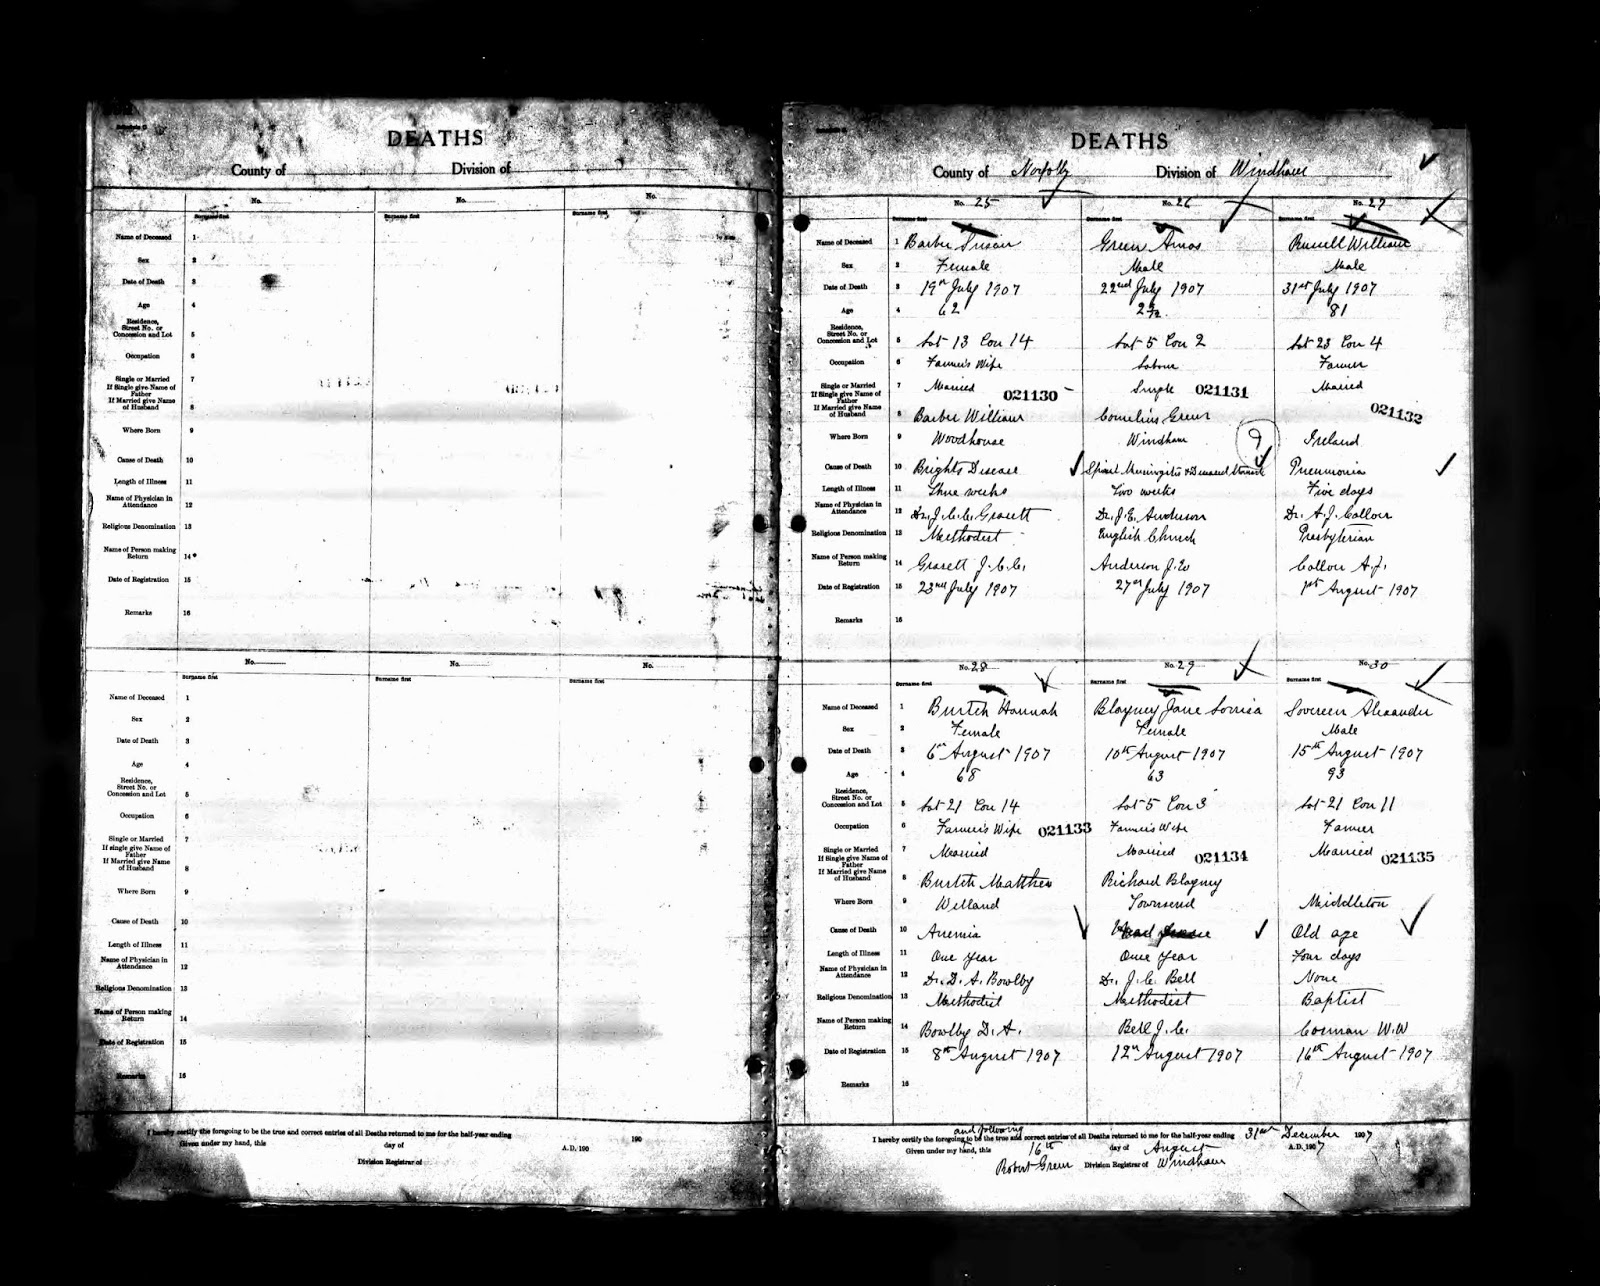 DEATHS
County of Division of
No. No. No.
Surname first Surname first Surname first
Name of Deceased 1
Sex 2
Date of Death 3
Age 4
Residence,
Street No. or
Concession and Lot 5
Occupation 6
Single or Married 7
If Single give Name of
Father
If Married give Name
of Husband 8
Where Born 9
Cause of Death 10
Length of Illness 11
Name of Physician in
Attendance 12
Religious Denomination 13
Name of Person making
Return 14
Date of Registration 15
Remarks 16
No. No. No.
Surname first Surname first Surname first
Name of Deceased 1
Sex 2
Date of Death 3
Age 4
Residence,
Street No. or
Concession and Lot 5
Occupation 6
Single or Married 7
If single give Name of
Father
If Married give Name
of Husband 8
Where Born 9
Cause of Death 10
Length of Illness 11
Name of Physician in
Attendance 12
Religious Denomination 13
Name of Person making
Return 14
Date of Registration 15
Remarks 16
I hereby certify the foregoing to be the true and correct entries of all Deaths returned to me for the half-year ending 190
Given under my hand, this day of A.D. 190
Division Registrar of
DEATHS
County of Norfolk Division of Windham
No. 25 No. 26 No. 27
Surname first Surname first Surname first
Name of Deceased 1 Barber Susan Green Amos Russell William
Sex 2 Female Male Male
Date of Death 3 19th July 1907 22nd July 1907 31st July 1907
Age 4 62 81
Residence,
Street No. or
Concession and Lot 5 Lot 13 Con 14 Lot 5 Con 2 Lot 23 Con 4
Occupation 6 Farmer's Wife Labour Farmer
Single or Married 7 Married 021130 Single 021131 Married
If Single give Name of
Father
If Married give Name 021132
of Husband 8 Barber William Cornelius Green
Where Born 9 Woodhouse Windham 9 Ireland
Cause of Death 10 Brights Disease Spinal Meningitis & Pneumonia
Length of Illness 11 Three weeks Two weeks Five days
Name of Physician in
Attendance 12 Dr. J.C.C. Grasett Dr. J.E. Anderson Dr. A.J. Collon
Religious Denomination 13 Methodist English Church Presbyterian
Name of Person making
Return 14 Grasett J.C.C. Anderson Collon A.J.
Date of Registration 15 23rd July 1907 27th July 1907 1st August 1907
Remarks 16
No. 28 No. 29 No. 30
Surname first Surname first Surname first
Name of Deceased 1 Burtch Hannah Blayney Jane Sovereen Alexander
Sex 2 Female Female Male
Date of Death 3 6th August 1907 10th August 1907 15th August 1907
Age 4 68 63 93
Residence,
Street No. or
Concession and Lot 5 Lot 21 Con 14 Lot 5 Con 3 Lot 21 Con 11
Occupation 6 Farmer's Wife 021133 Farmer's Wife Farmer
Single or Married 7 Married Married 021134 Married 021135
If Single give Name of
Father
If Married give Name
of Husband 8 Burtch Matthew Richard Blayney
Where Born 9 Welland Townsend Middleton
Cause of Death 10 Anemia Old age
Length of Illness 11 One year One year Four days
Name of Physician in
Attendance 12 Dr. D. A. Bowlby Dr. J.C. Bell None
Religious Denomination 13 Methodist Methodist Baptist
Name of Person making
Return 14 Bowlby D. A. Bell J.C. Corman W.W
Date of Registration 15 8th August 1907 12th August 1907 16th August 1907
Remarks 16
and following
I hereby certify the foregoing to be the true and correct entries of all Deaths returned to me for the half-year ending 31st December 1907
Given under my hand, this 16th day of August A.D. 1907
Robert Green Division Registrar of Windham